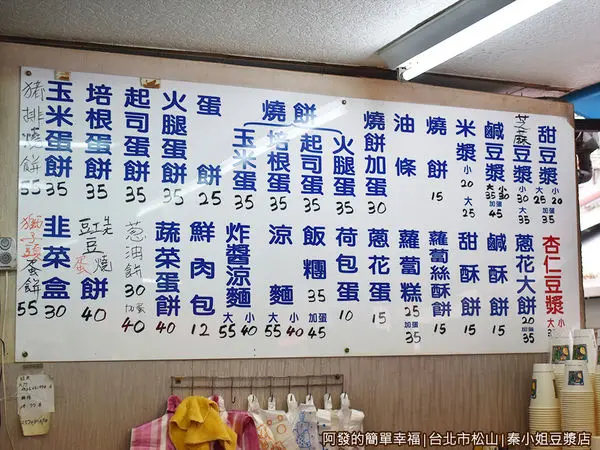 甜豆漿 大25 小20
芝麻 大35 小30
鹹豆漿 大35 小30 加蛋45
米漿 小20 大25
燒餅 15
油條
燒餅加蛋 30
燒餅
火腿蛋 35
起司蛋 35
培根蛋 35
玉米蛋 35
蛋餅 25
火腿蛋餅 35
起司蛋餅 35
培根蛋餅 35
玉米蛋餅 35
豬排燒餅 55
杏仁豆漿 大35 小
蔥花大餅 20 加蛋35
鹹酥餅 15
甜酥餅 15
蘿蔔絲酥餅 30
蘿蔔糕 25 加蛋35
蔥花蛋 15
荷包蛋 10
飯糰 35 加蛋45
涼麵 大55 小40
炸醬涼麵 大55 小40
鮮肉包 12
蔬菜蛋餅 40
蔥油餅 30 加蛋40
紅豆燒餅 40
韭菜盒 30
蛋餅 55
阿發的簡單幸福|台北市松山|秦小姐豆漿店